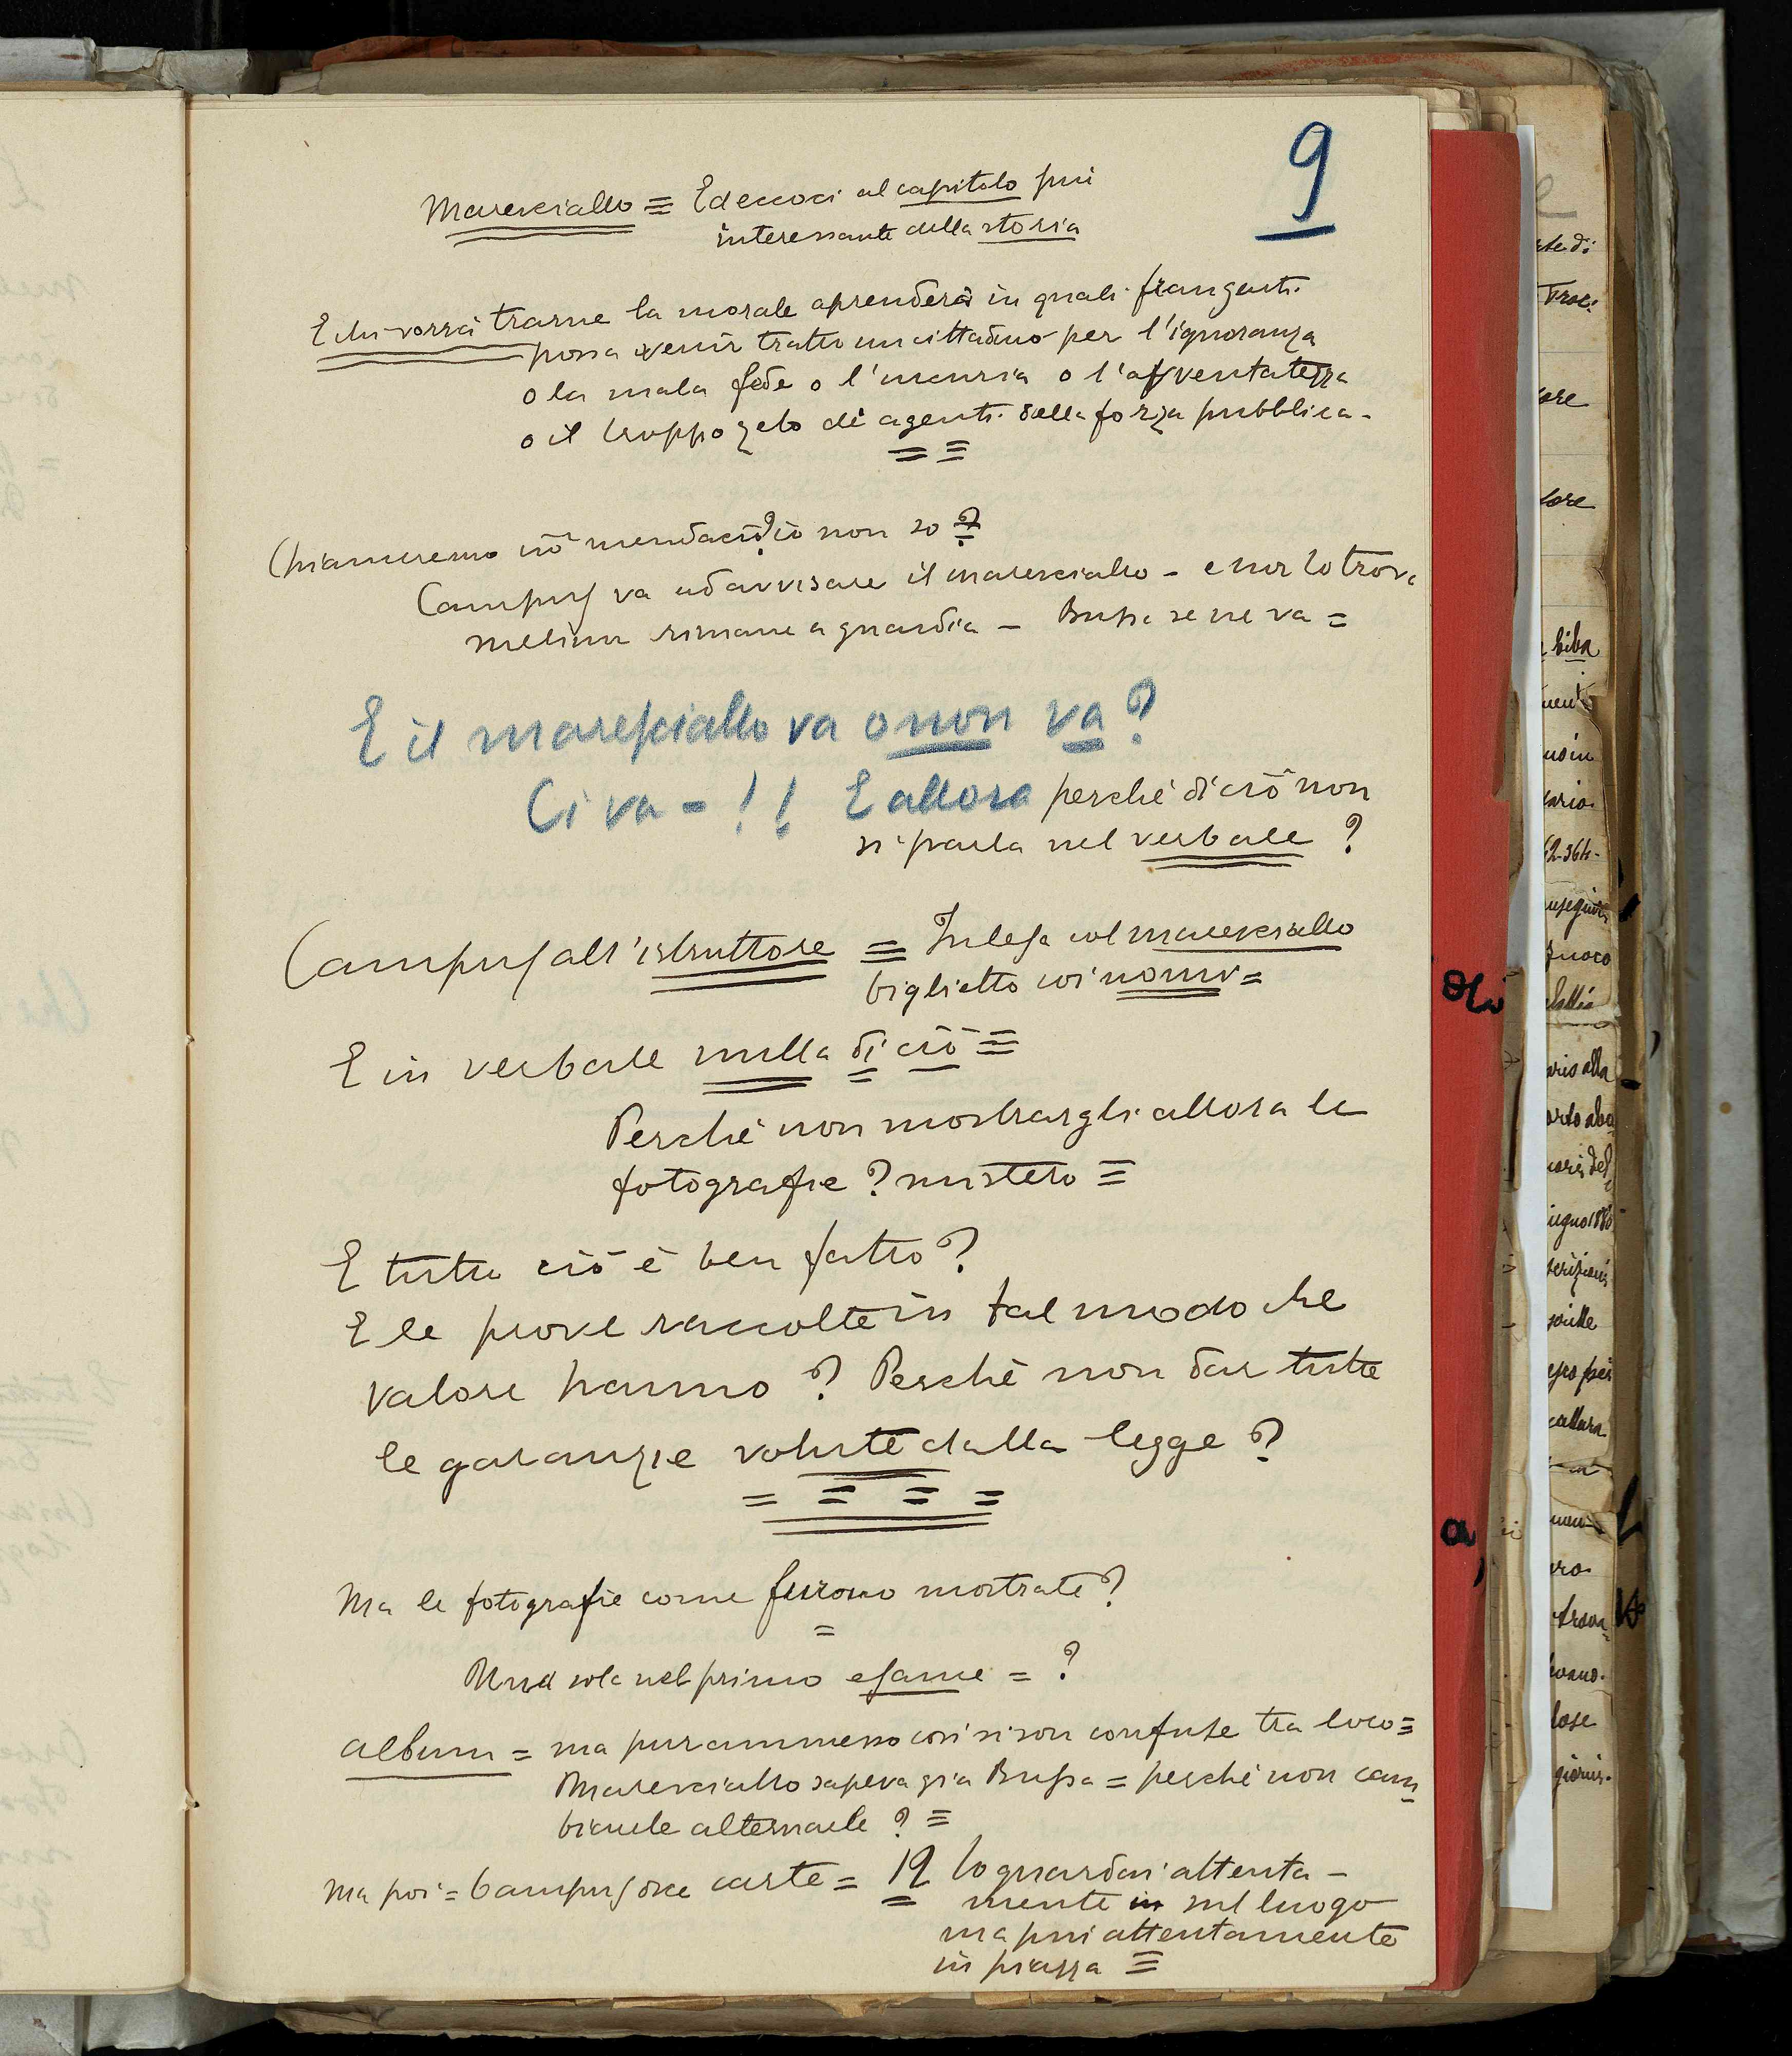 9
Maresciallo = Ed eccoci al capitolo più
interessante della storia
E chi vorrà trarne la morale aprenderà in quali frangenti
possa venir tratto un cittadino per l'ignoranza
o la mala fede o l'incuria o l'avventatezza
o il troppo zelo di agenti della forza pubblica -
= =
Chiameremo ciò mendacio? io non so?
Campus va ad avvisare il maresciallo - e non lo trova
Melina rimane a guardia - Bussa se ne va =
E il maresciallo va o non va?
Ci va = !! E allora perché di ciò non
si parla nel verbale ?
Campus all'istruttore = Intesa col maresciallo
biglietto coi nomi =
E in verbale nulla di ciò =
Perché non mostrargli allora le
fotografie ? mistero =
E tutto ciò è ben fatto?
E le prove raccolte in tal modo che
valore hanno ? Perché non dar tutte
le garanzie volute dalla legge ?
= = = =
Ma le fotografie come furono mostrate ?
=
Una sola nel primo esame = ?
album = ma pur ammesso così si son confuse tra loro =
Maresciallo sapeva già Bussa = perché non cam
biarle alternarle ? =
Ma poi = Campus dice carte = 19 lo guardai attenta -
mente sul luogo
ma più attentamente
in piazza =